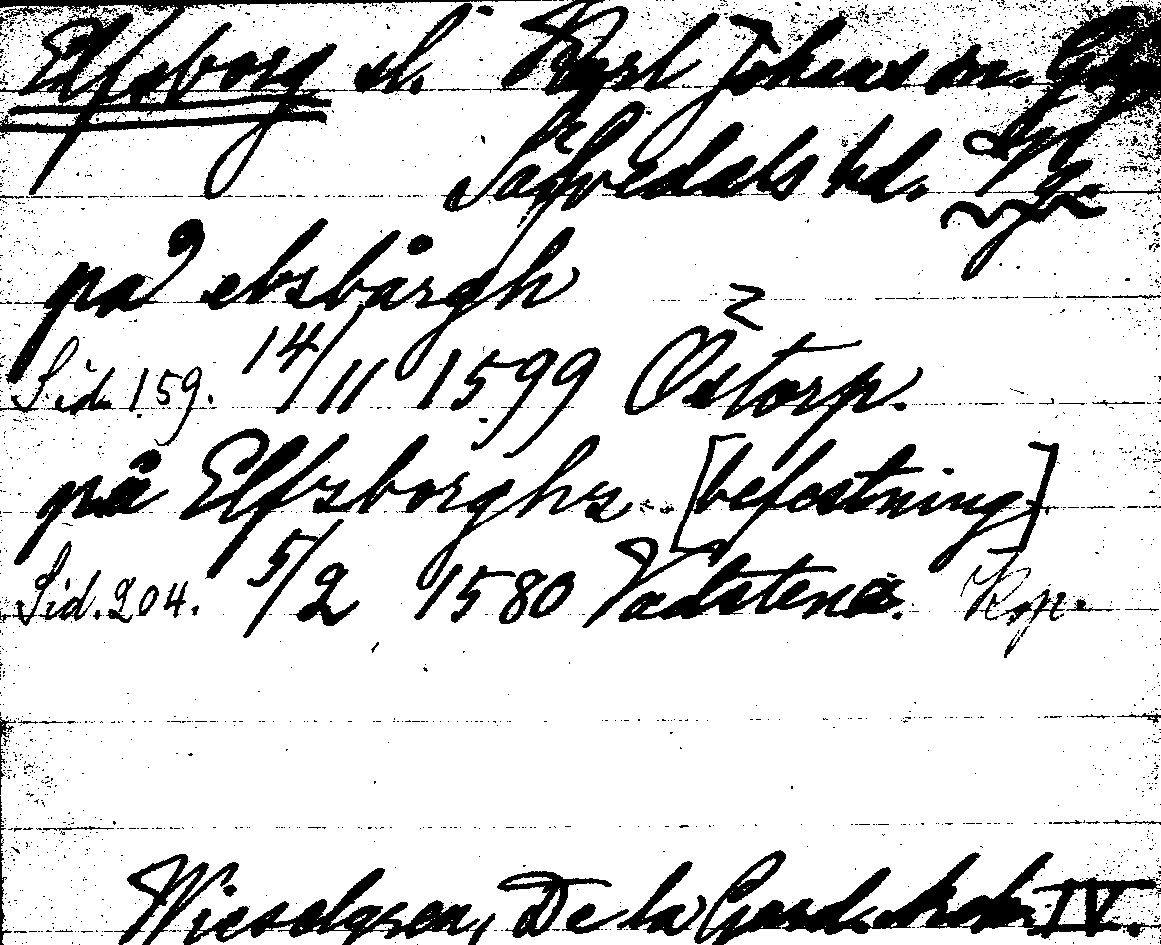 Elfsborg sl. Karl Johans sn. Gbg
Säfvedals hd. Vg.
på elsbårgh
Sid. 159. 14/11 1599 Östorp.
på Elfsborghs .. [befestning]
Sid. 204. 5/2 1580 Vadstena. Kop.
Wieselgren, De la Gard. Arch. IV.